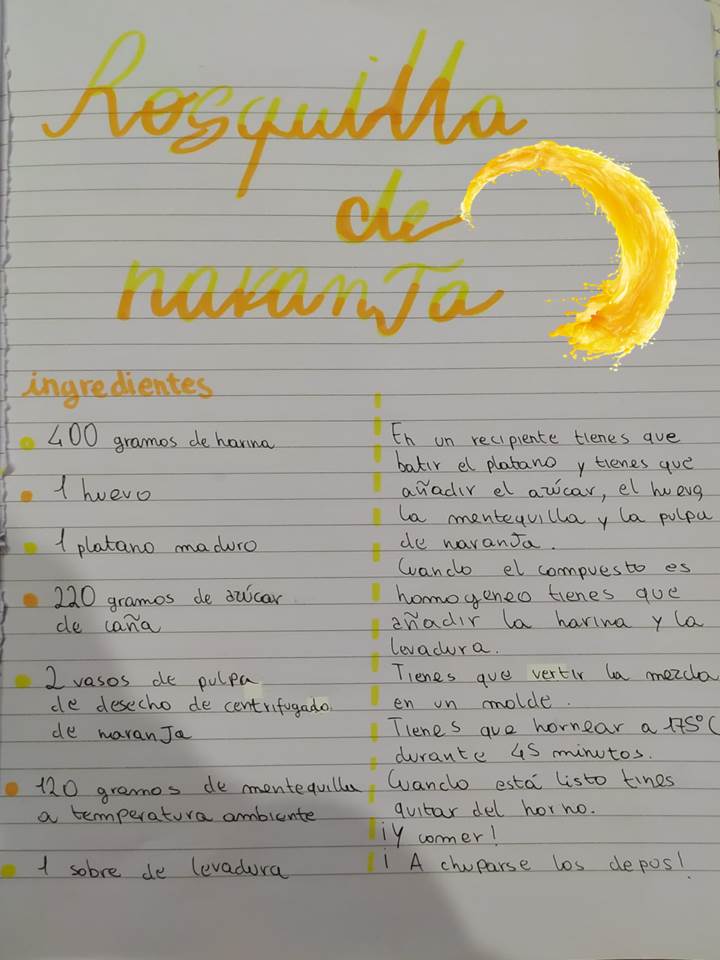 Rosquilla
de
naranJa
ingredientes
400 gramos de harina
1 huevo
1 platano maduro
220 gramos de azúcar
de caña
2 vasos de pulpa
de desecho de centrifugado
de naranJa
120 gramos de mentequilla
a temperatura ambiente
1 sobre de levadura
En un recipiente tienes que
batir el platano y tienes que
añadir el azúcar, el huevo,
la mentequilla y la pulpa
de naranJa.
Cuando el compuesto es
homogeneo tienes que
añadir la harina y la
levadura.
Tienes que vertir la mezcla
en un molde.
Tienes que hornear a 175°C
durante 45 minutos.
Cuando está listo tines
quitar del horno.
¡Y comer!
¡A chuparse los depos!